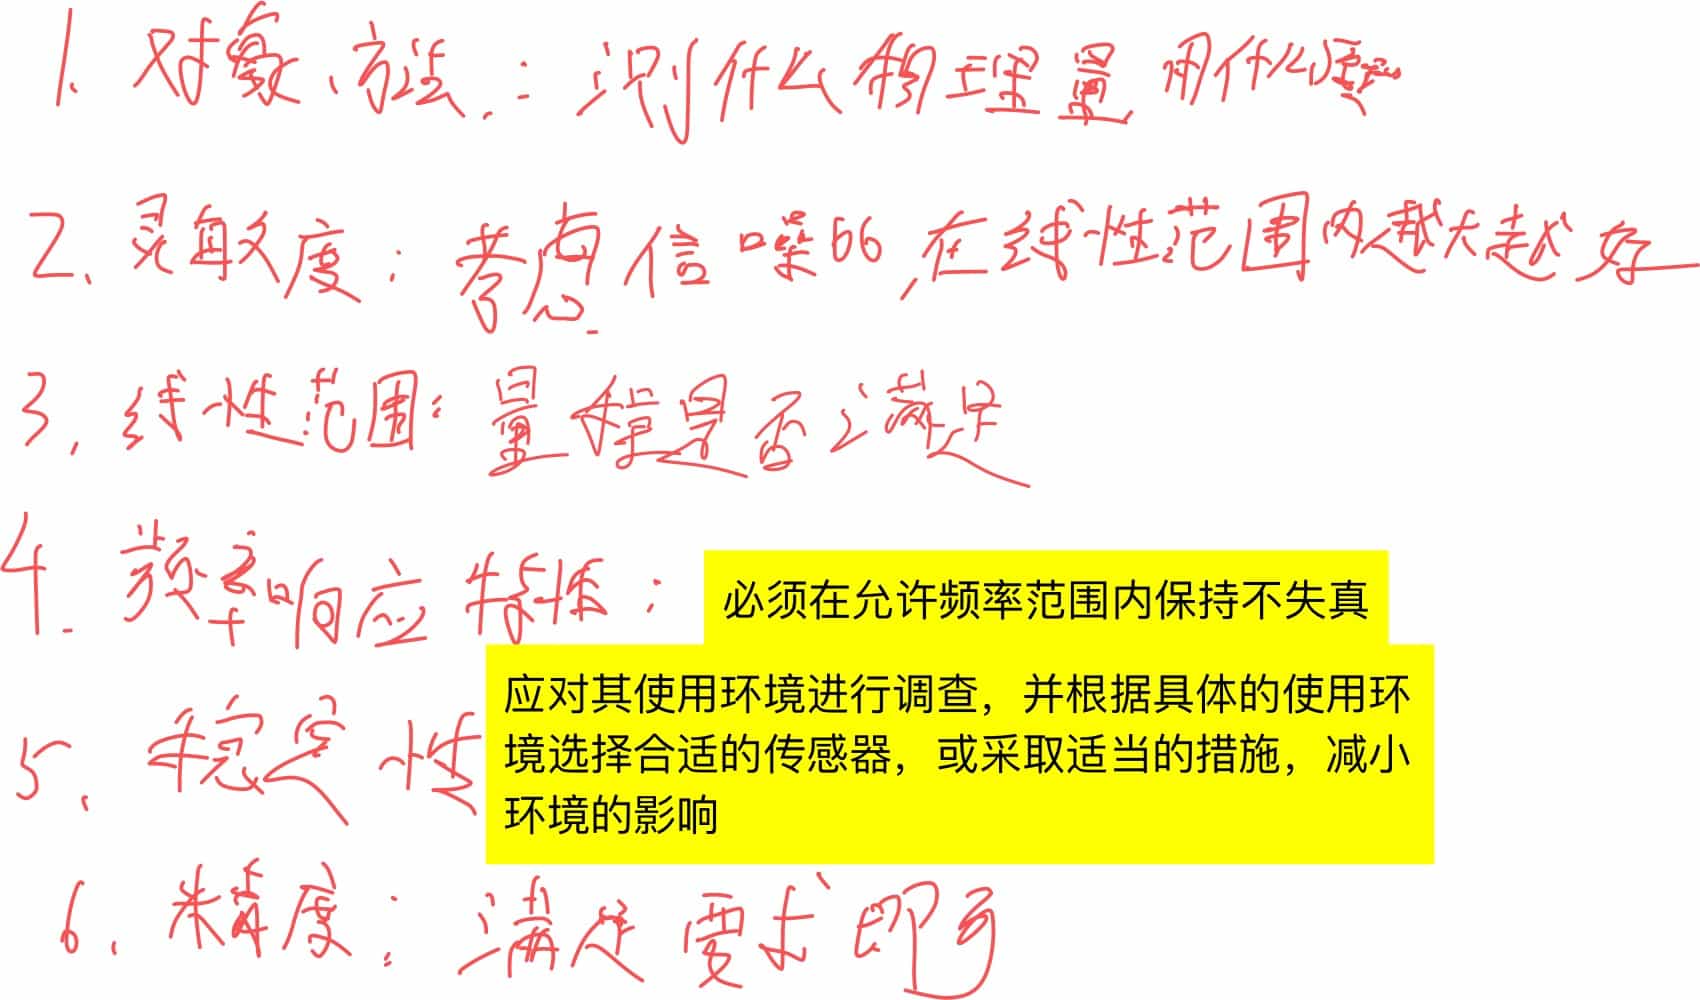 1. 对象、方法：测什么物理量 用什么原理
2. 灵敏度：考虑信噪比，在线性范围内越大越好
3. 线性范围：量程是否满足
4. 频率响应特性：必须在允许频率范围内保持不失真
5. 稳定性 应对其使用环境进行调查，并根据具体的使用环
境选择合适的传感器，或采取适当的措施，减小
环境的影响
6. 精度：满足要求即可